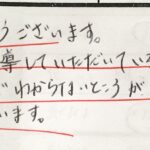 うございます。
導していただいている
わからないところが
います。